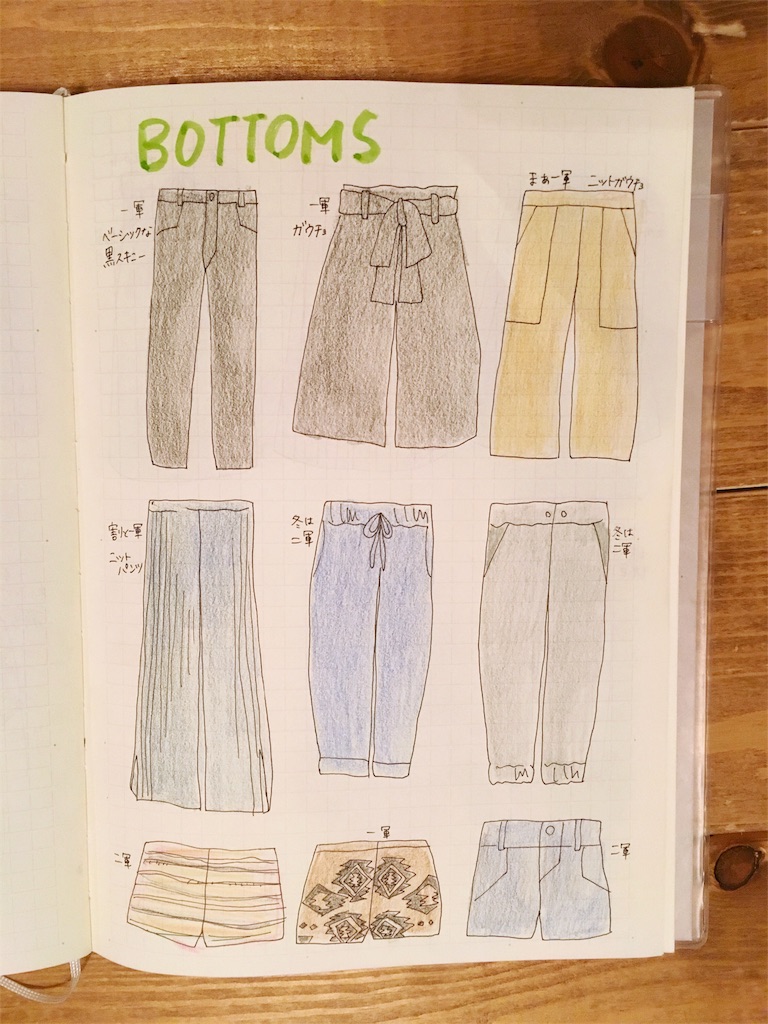 BOTTOMS
一軍
ベーシックな
黒スキニー
一軍
ガウチョ
まあ一軍 ニットガウチョ
割と一軍
ニット
パンツ
冬は
二軍
冬は
二軍
二軍
一軍
二軍